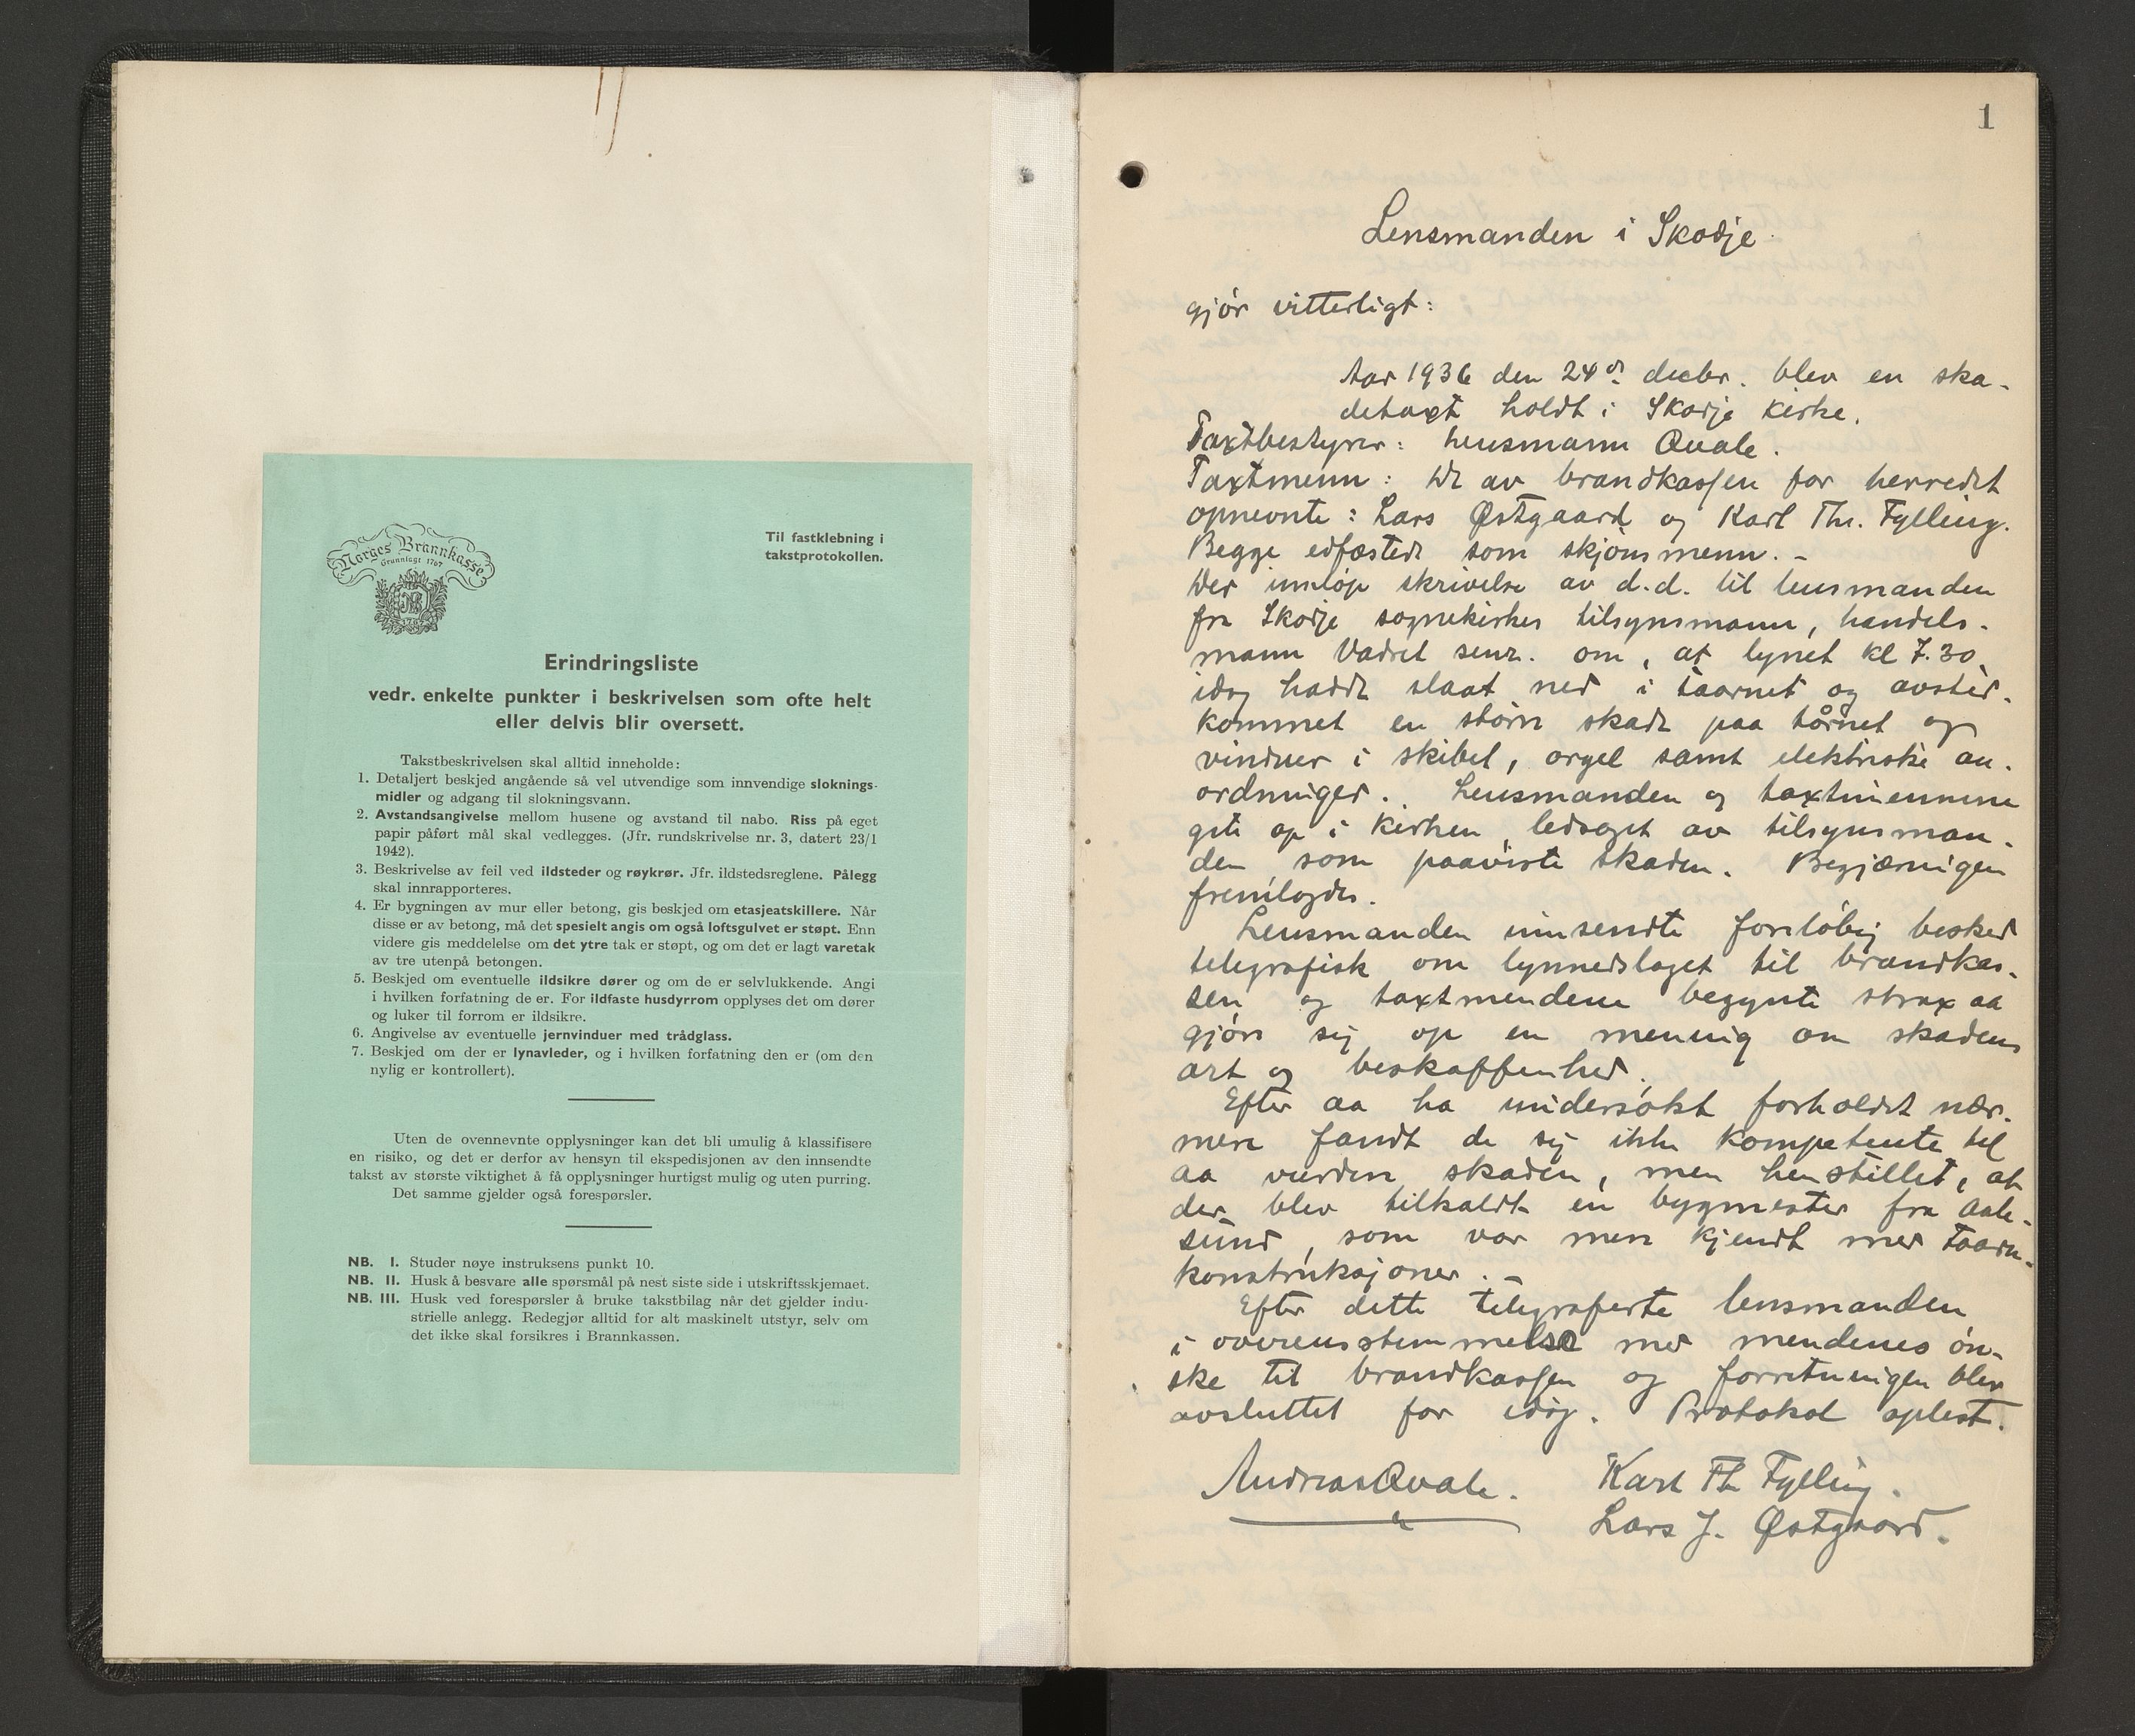 Norges Brannkasse
Grunnlagt 1767
NB
1767
Til fastklebning i
takstprotokollen.
Erindringsliste
vedr. enkelte punkter i beskrivelsen som ofte helt
eller delvis blir oversett.
Takstbeskrivelsen skal alltid inneholde:
1. Detaljert beskjed angående så vel utvendige som innvendige sloknings-
midler og adgang til slokningsvann.
2. Avstandsangivelse mellom husene og avstand til nabo. Riss på eget
papir påført mål skal vedlegges. (Jfr. rundskrivelse nr. 3, datert 23/1
1942).
3. Beskrivelse av feil ved ildsteder og røykrør. Jfr. ildstedsreglene. Pålegg
skal innrapporteres.
4. Er bygningen av mur eller betong, gis beskjed om etasjeatskillere. Når
disse er av betong, må det spesielt angis om også loftsgulvet er støpt. Enn
videre gis meddelelse om det ytre tak er støpt, og om det er lagt varetak
av tre utenpå betongen.
5. Beskjed om eventuelle ildsikre dører og om de er selvlukkende. Angi
i hvilken forfatning de er. For ildfaste husdyrrom opplyses det om dører
og luker til forrom er ildsikre.
6. Angivelse av eventuelle jernvinduer med trådglass.
7. Beskjed om der er lynavleder, og i hvilken forfatning den er (om den
nylig er kontrollert).
Uten de ovennevnte opplysninger kan det bli umulig å klassifisere
en risiko, og det er derfor av hensyn til ekspedisjonen av den innsendte
takst av største viktighet å få opplysninger hurtigst mulig og uten purring.
Det samme gjelder også forespørsler.
NB. I. Studer nøye instruksens punkt 10.
NB. II. Husk å besvare alle spørsmål på nest siste side i utskriftsskjemaet.
NB. III. Husk ved forespørsler å bruke takstbilag når det gjelder indu-
strielle anlegg. Redegjør alltid for alt maskinelt utstyr, selv om
det ikke skal forsikres i Brannkassen.
1
Lensmanden i Skodje
gjør vitterligt:
Aar 1936 den 24de decbr. blev en ska-
detaxt holdt i Skodje kirke.
Taxtbestyrer: lensmann Qvale.
Taxtmenn: De av brandkassen for herredet
opnevnte: Lars Østgaard og Karl Th. Fylling.
Begge edfæstede som skjønsmenn. -
Der innløp skrivelse av d.d. til lensmanden
fra Skodje sognekirkes tilsynsmann, handels-
mann Vadset senr. om, at lynet kl 7.30
idag hadde slaat ned i taarnet og avsted-
kommet en større skade paa tårnet og
vinduer i skibet, orgel samt elektriske an-
ordninger. Lensmanden og taxtmennene
gikk op i kirken ledsaget av tilsynsman-
den som paaviste skaden. Begjæringen
fremlagdes.
Lensmanden innsendte foreløbig besked
telegrafisk om lynnedslaget til brandkas-
sen og taxtmendene begynte strax aa
gjøre sig op en mening om skadens
art og beskaffenhed.
Efter aa ha undersøkt forholdet nær-
mere fandt de sig ikke kompetente til
aa vurdere skaden, men henstillet, at
der blev tilkaldt en bygmester fra Aale-
sund, som var mere kjendt med taarn-
konstruksjoner. -
Efter dette telegraferte lensmanden
i overensstemmelse med mendenes øn-
ske til brandkassen og forretningen blev
avsluttet for idag. Protokol oplest.
Andreas Qvale. Karl Th Fylling.
Lars J. Østgaard.